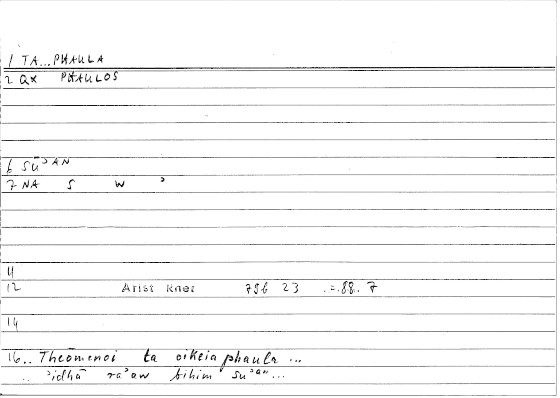 1 TA...PHAULA
2 QX PHAULOS
6 SŪʾAN
7 NA S W ʾ
11
12 Arist Rhet 756 23 .=.88. 7
14
16.. Theōmenoi ta oikeia phaula ...
.. ʾidhā raʾaw bihim sūʾan...